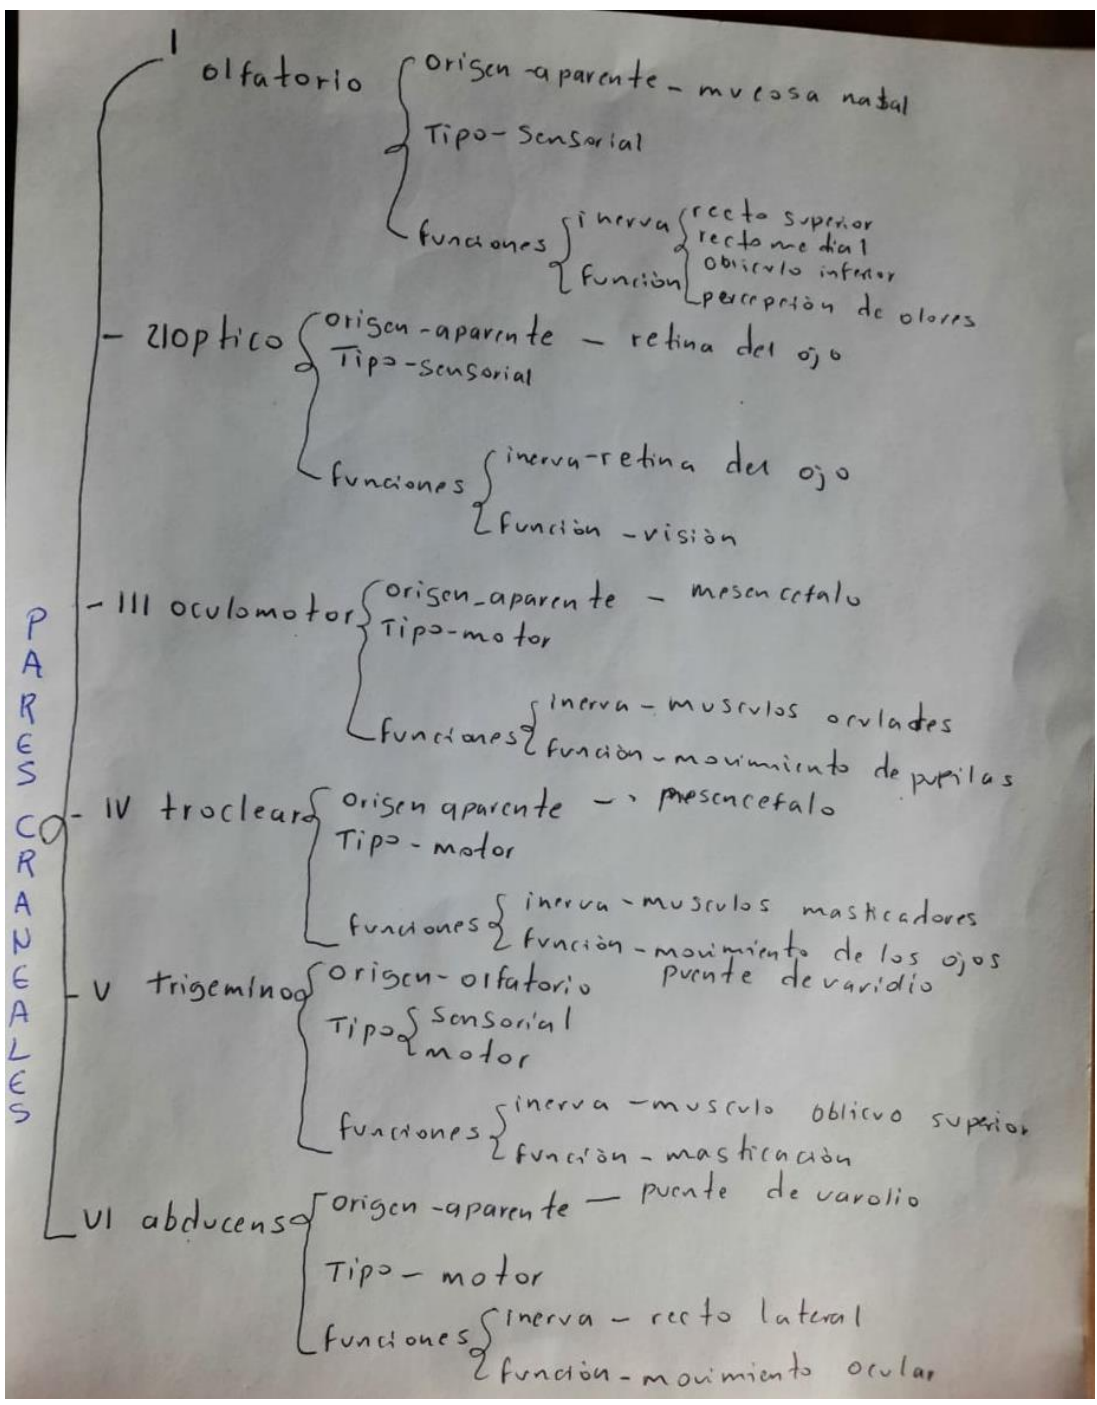 I
olfatorio
origen-aparente-mucosa nasal
Tipo-sensorial
funciones
inerva
recto superior
recto medial
función
percepción de olores
optico
origen-aparente - retina del ojo
Tipo-sensorial
funciones
inerva-retina del ojo
función-visión
III oculomotor
origen-aparente - mesencefalo
Tipo-motor
funciones
inerva-musculos
función-movimiento de pupilas
IV troclear
origen aparente - mesencefalo
Tipo-motor
funciones
inerva-musculos masticadores
función-movimiento de los ojos
V trigemino
origen-olfatorio puente de varidio
Tipo
sensorial
motor
funciones
inerva-musculo oblicuo superior
función-masticación
VI abducens
origen-aparente - puente de varolio
Tipo-motor
funciones
inerva-recto lateral
función-movimiento ocular
PARES CRANEALES